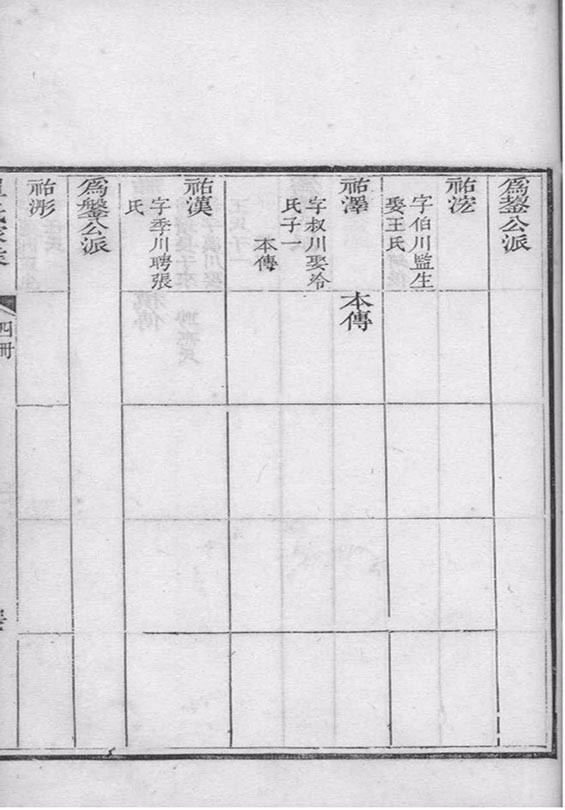 為鋆公派
祐浤
字伯川監生
娶王氏
祐澤
字叔川娶冷
氏子一
本傳
本傳
祐漢
字季川聘張
氏
為鑿公派
祐浵
四冊